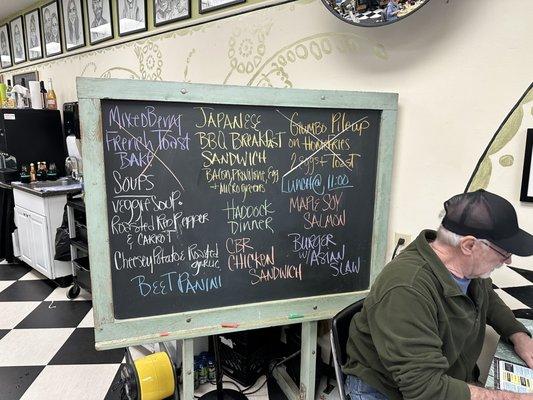 Mixed Berry
French Toast
BAKE
Soups
Veggie Soup
Roasted Red Pepper
& CARROT
Cheesy Potato & Roasted garlic
BEET PANINI
JAPANESE
BBQ BREAKFAST
SANDWICH
BACON, PROVOLONE, Egg
+ MICROGREENS
HADDOCK
DINNER
CBR
CHICKEN
SANDWICH
GUMBO Pileup
on Homefries
2 eggs + TOAST
LUNCH @ 11:00
MAPLE SOY
SALMON
BURGER
W/ ASIAN
SLAW